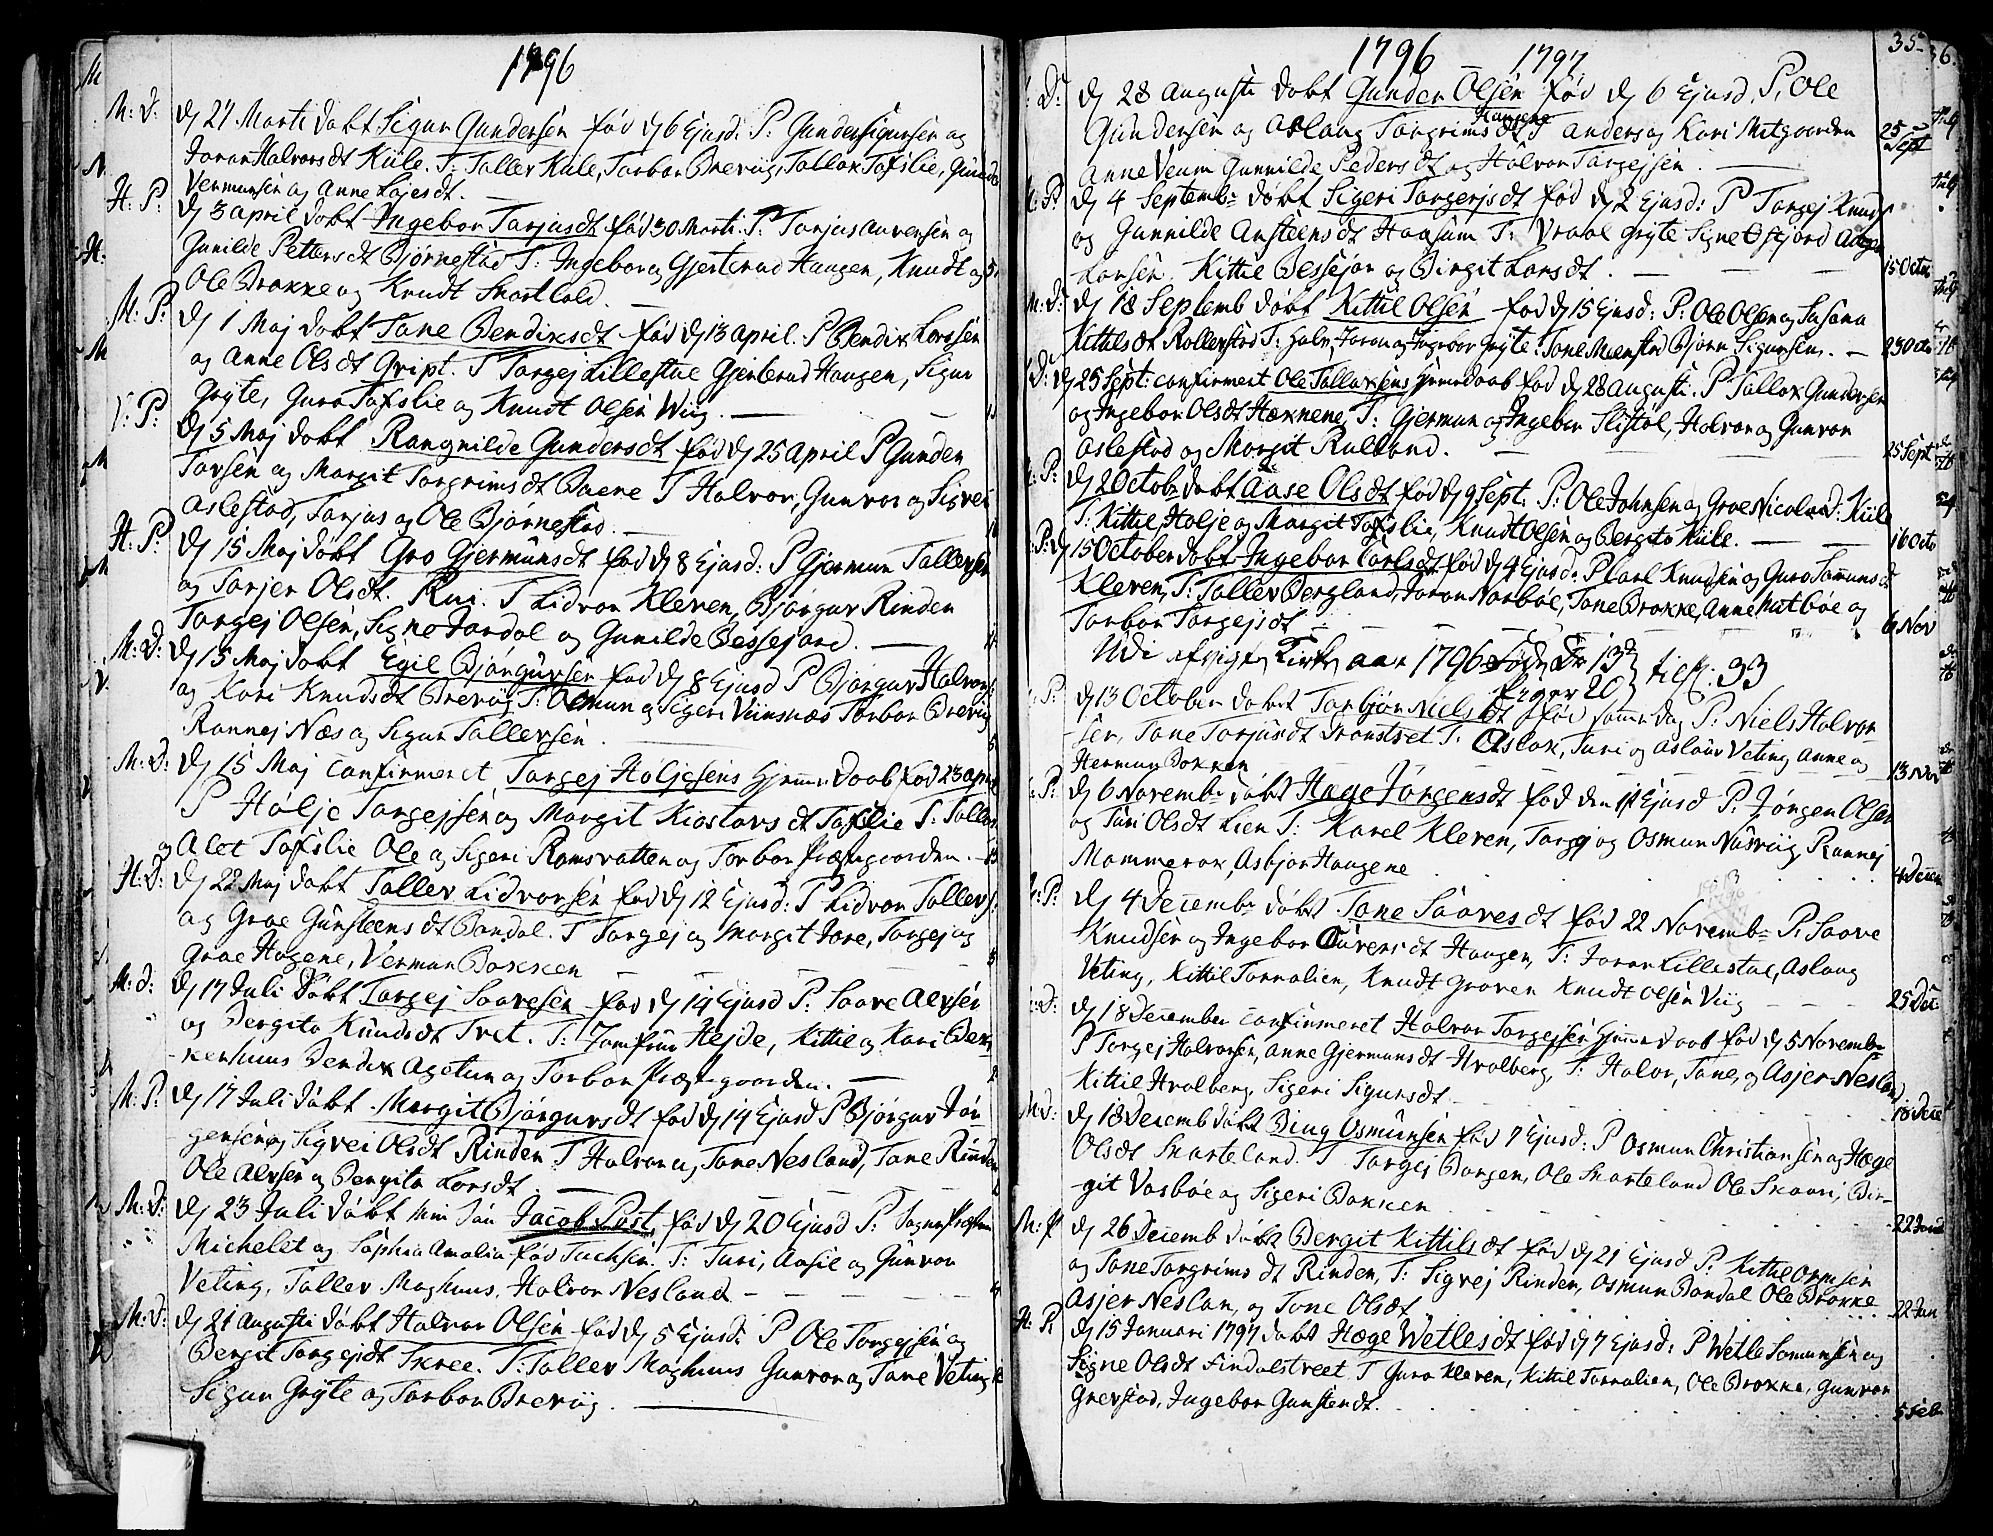 1796
M: D: dj 27 Marti døbt Sigur Gundersen fød dj 6 Ejusd: P: Gunder Sigursen og
Joran Halvorsdt Kiile. T: Tallev Kiile, Torbor Brevig, Tallox Tofslie, Gunder
Vermunsen og Anne Lajesdt.
H: P: dj 3 april døbt Ingebor Tarjusdt fød 30 Marti. P: Tarjus Auvensen og
Gunilde Pettersdt Bjørnestad T: Ingebor og Gjertrud Haugen, Knudt og
Ole Brokke og Knudt Skarteled.
M: P: dj 1 Maj døbt Tone Bendixsdt fød dj 13 april. P Bendix Larssen
og Anne Olsdt Gript. T Targej Lillestue Gjertrud Haugen, Sigur
Gryte, Guro Tofslie og Knudt Olsen Wiig.
V: P: dj 5 Maj døbt Rangnilde Gundersdt fød dj 25 april P Gunder
Tarsen og Margit Torgrimsdt Bnene T Halvor, Gunvor og Sigvei
Aslestad, Tarjus og Ole Bjørnestad.
H: P: dj 15 Maj døbt Gro Gjermunsdt fød dj 8 Ejusd: P Gjermun Tallevsen
og Torjer Olsdt. Rui. T Lidvor Kleven, Bjørgur Rinden
Targej Olsen, Signe Jordal og Gunilde Bessejord.
M: D: dj 15 Maj døbt Egil Bjørgursen fød dj 8 Ejusd P Bjørgur Halvors:
og Kari Knudsdt Brevig T: Osmun og Sigeri Viinsnæs Torbor Brevig
Rannej Næs og Sigur Tallevsen.
M: D: dj 15 Maj confirmeret Targej Holjesens Hjemme Daab fød 23 april
P Holje Targejsen og Margit Kiøstovsdt Tofslie T: Tallox
og Alet Tofslie Ole og Sigeri Romsvatten og Torbor Præstegaarden.
H: D: dj 22 Maj døbt Tallev Lidvorsen fød dj 12 Ejusd: P Lidvor Tallevs:
og Groe Gunsteensdt Bandal. T Targej og Margit Jore, Targej og
Groe Hagene, Vermun Bakken
M: D: dj 17 Juli døbt Targej Saavesen fød dj 14 Ejusd P: Saave Alvsen
og Bergito Knudsdt Tvet. T: Jomfrue Hejde, Kittil og Kari Bek-
kerhuus Bendix Agetun og Torbor Præstegaarden.
M: P: dj 17 Juli døbt Margit Bjørgursdt fød dj 14 Ejusd P Bjørgur Jør-
gensen og Sigvei Olsdt Rinden T Halvor og Tone Nesland, Tone Rinden
Ole Alvsen og Bergito Larsdt.
M: D: dj 23 Juli døbt min Søn Jacob Post, fød dj 20 Ejusd P: Sogne Præsten
Michelet og Sophia Amalia fød Tuchsen. T: Turi, Aasil og Gunvor
Veting, Tallev Maghuus, Halvor Nesland
M: D: dj 21 Augusti døbt Halvor Olsen fød dj 5 Ejusd: P Ole Targejsen og
Bergit Targejsdt Skree. T: Tallev Maghuus Gunvor og Tone Veting
Sigur Gryte og Torbor Brevig.
1796 1797 35
D: dj 28 Augusti døbt Gunder Olsen fød dj 6 Ejusd. P: Ole
Gundersen og Aslaug Torgrimsdt Haugene T Anders og Kari Mitgaarden
Anne Veum Gunnilde Pedersdt og Halvor Targejsen.
P: dj 4 Septembr døbt Sigeri Targejsdt fød dj 2 Ejusd: P Targej Knuds
og Gunnilde Ansteensdt Haasum T: Vraal Gryte Signe Ofstjord Asger
Larsen. Kittil Bessejor og Birgit Larsdt.
M: D: dj 18 Septemb døbt Kittil Olsen fød dj 15 Ejusd: P: Ole Olsen og Susana
Kittilsdt Rollerstad T: Halv, Joran og Ingebor Gryte. Tone Moenstad Bjørn Sigursen.
D: dj 25 Sept: confirmert Ole Talloxsens Hjemedaab fød dj 28 Augusti. P Tallox Gundersen
og Ingebor Olsdt Hæknene. T: Gjermun og Ingebor Flistøl, Halvor og Gunvor
Aslestad og Margit Rulland.
P: dj 2 Octob døbt Aase Olsdt fød dj 9 Sept. P: Ole Johnsen og Groe Nicolaid: Kiile
T: Kittil Holje og Margit Tofslie, Knudt Olsen og Bergito Kiile.
P: dj 15 October døbt Ingebor Carlsdt fød dj 4 Ejusd: P Carl Knudsen og Guro Tomunsdt
Kleven, T: Tallev Bergland, Joran Norbøe, Tone Brokke, Anne Matbøe og
Torbor Targejsdt
Udi afvigte Kirke aar 1796 Fød Dr 13
Piger 20 til S. 33
P: dj 13 October døbt Torbjør Nielsdt fød samme dag P: Niels Halvor-
sen, Tone Torjusdt Trontvet T: Aslak, Turi og Aslaug Veting Anne og
Herman Bokken
P: dj 6 Novembr døbt Hæge Jørgensdt fød den 1st Ejusd P: Jørgen Olsen
og Turi Olsdt Lien T: Karel Kleven, Targej og Osmun Nasviig, Rannej
Mammerox, Asbjør Haugene
P: dj 4 Decembr døbt Tone Saavesdt fød 22 Novembr P: Saave
Knudsen og Ingebor Auvensdt Haugen, T: Joran Lillestue, Aslaug
Veting, Kittil Tarralien, Knudt Groven Knudt Olsen Viig
D: dj 18 December confirmeret Halvor Targejsens Hjemme Daab fød dj 5 Novembr
P Targej Halvorsen, Anne Gjermunsdt Hvalberg, T: Halvor, Tone, og Asjer Nesland
Kittil Hvalberg, Sigeri Sigursdt
M: D: dj 18 Decemb døbt Biug Osmunsen fød 7 Ejusd: P Osmun Christiansen og Hæge
Olsdt Skarteland. T Targej Borgen, Ole Skarteland Ole Skaari, Bir-
git Vasbøe og Sigeri Bakken
M: P dj 26 Decemb døbt Bergit Kittilsdt fød dj 21 Ejusd P: Kittil Ormsen
og Tone Torgrimsdt Rinden, T: Sigvej Rinden, Osmun Bandal Ole Brokke
Asjer Neslan, og Tone Olsdt
H: P: dj 15 Januari 1797 døbt Hæge Wetlesdt fød dj 7 Ejusd: P Wetle Somunsen og
Signe Olsdt Findalstreet T Guro Kleven, Kittil Tarralien, Ole Brokke, Gunvor
Grevstad, Ingebor Gunstendt.
25 Sept
15 Octo
23 Octo
25 Sept
16 Octo
6 Nov
13 Nov
4 Decem
25 Dec
18 Decet
22 Janu
22 Jan
5 Feb